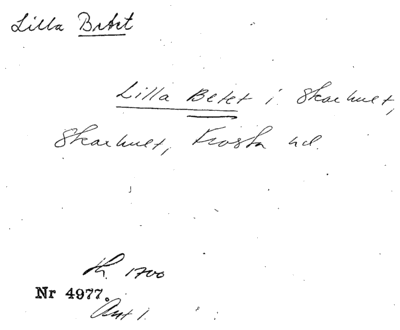 Lilla Betet
Lilla Betet i Skarhult,
Skarhult, Frosta hd.
th. 1700
Nr 4977.
Ant 1.